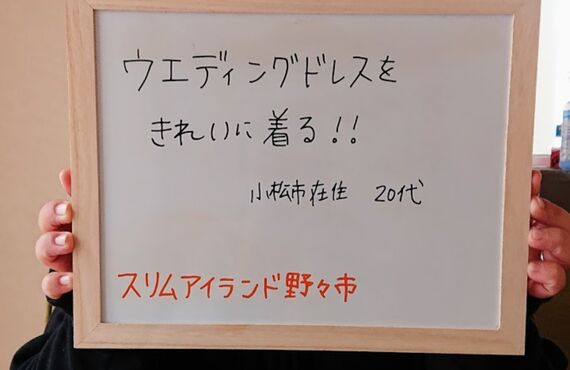 ウエディングドレスを
きれいに着る!!
小松市在住 20代
スリムアイランド野々市